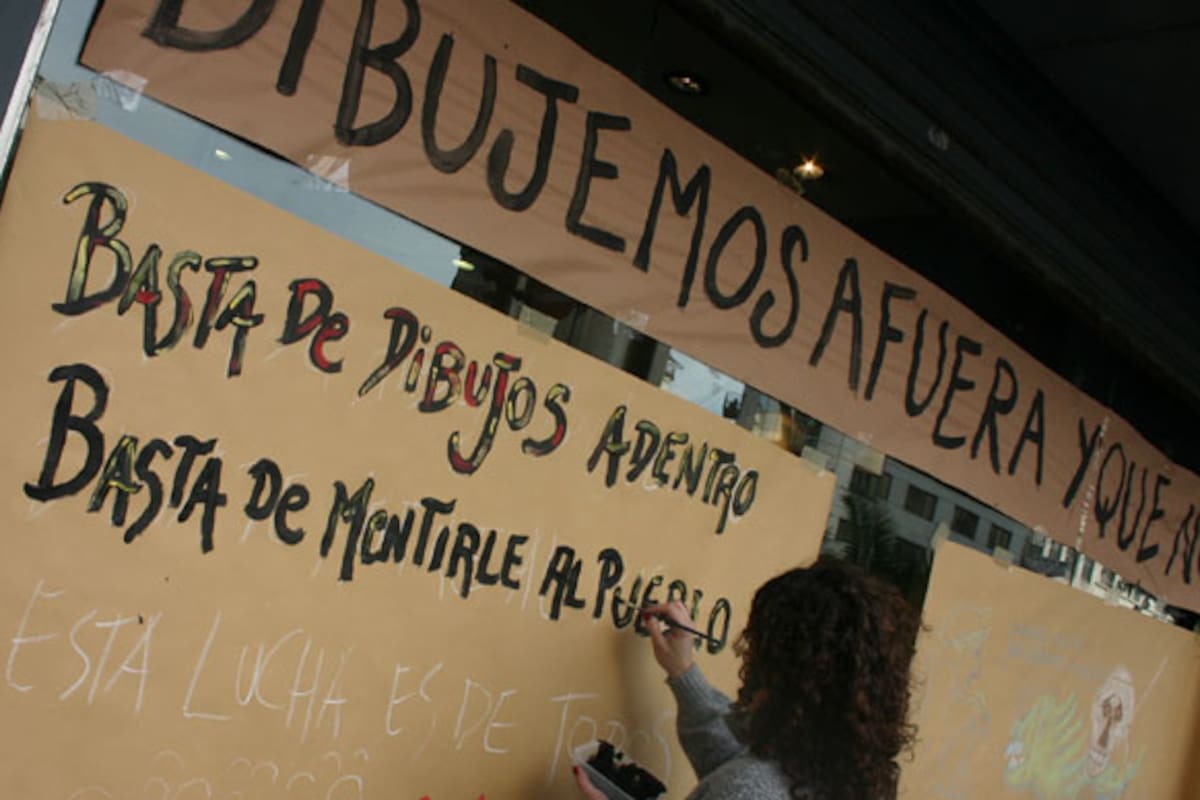 DIBUJEMOS AFUERA Y QUE N
BASTA De DiBUJOS ADENTRO
BASTA De MeNTIRLE AL PUEBLO
ESTA LUCHA ES DE TODOS